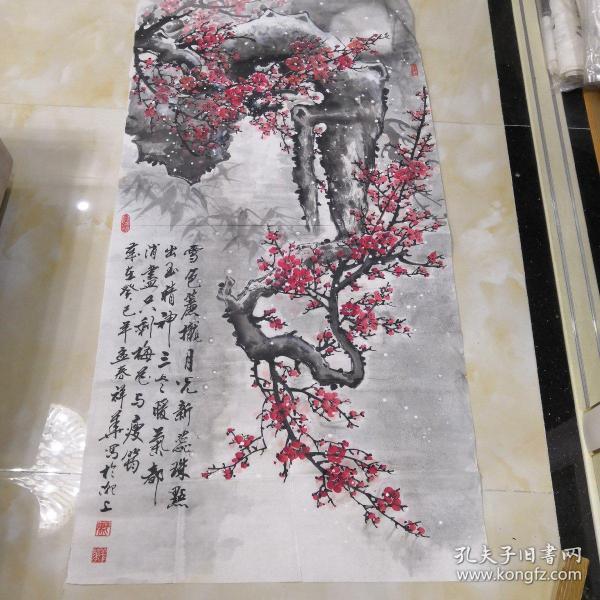 雪色簾櫳月光新蕊珠點
出玉精神三冬暖氣都
消盡只剩梅花与瘦筠
歲在癸巳年孟春祥華写於湖上
孔夫子旧书网
www.kongfz.com